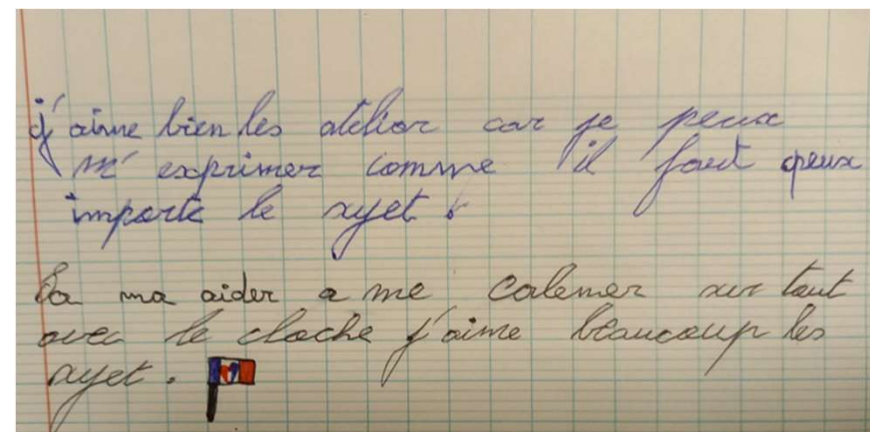 j'aime bien les atelior car je peux
m'exprimer comme il faut peux
importe le sujet.
Ça ma aider a me calemer sur tout
avec le cloche j'aime beaucoup les
sujet.